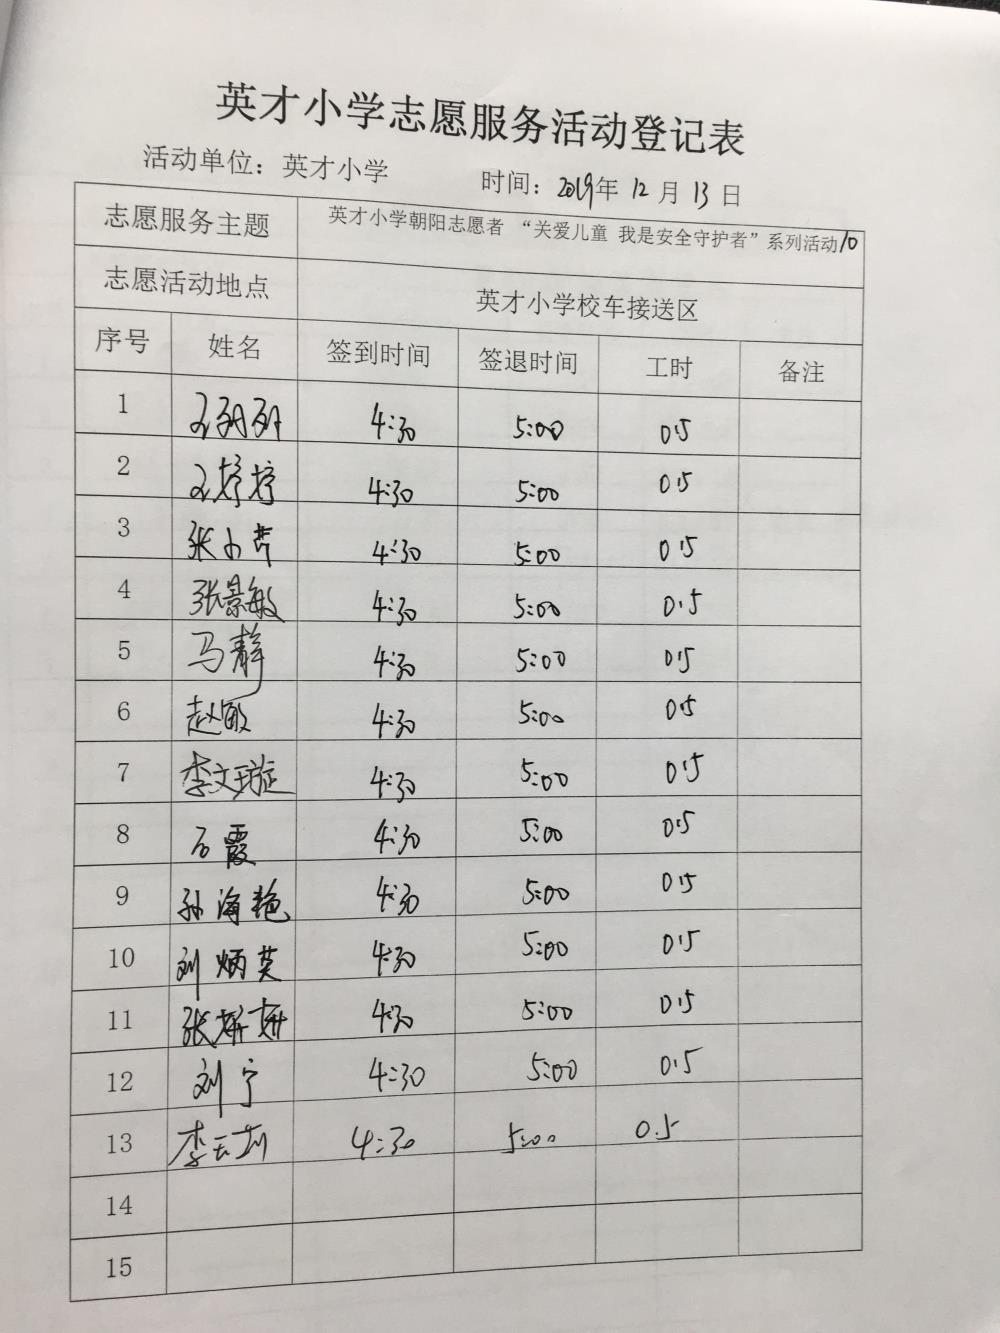 英才小学志愿服务活动登记表
活动单位：英才小学 时间：2019年 12月 13日
志愿服务主题 英才小学朝阳志愿者 “关爱儿童 我是安全守护者”系列活动10
志愿活动地点 英才小学校车接送区
序号 姓名 签到时间 签退时间 工时 备注
1 4:30 5:00 0.5
2 王婷婷 4:30 5:00 0.5
3 张小芹 4:30 5:00 0.5
4 张景敏 4:30 5:00 0.5
5 马静 4:30 5:00 0.5
6 赵敏 4:30 5:00 0.5
7 李文璇 4:30 5:00 0.5
8 石霞 4:30 5:00 0.5
9 孙海艳 4:30 5:00 0.5
10 刘炳英 4:30 5:00 0.5
11 张妍妍 4:30 5:00 0.5
12 刘宁 4:30 5:00 0.5
13 4:30 5:00 0.5
14
15